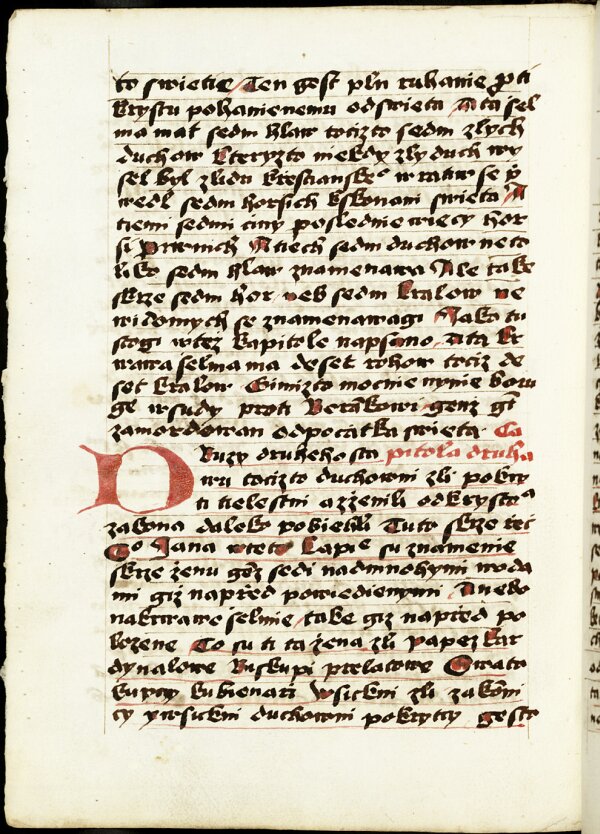 to swietie Ten gest pln ruhanie p̱ti
krystu pohanienemu od swieta A ta sel
ma mat sedm hlaw tocizto sedm zlych
duchow kteryzto niekdy zly duch wy
sel byl z lidu krestianske° wratiw se p̱
wedl sedm horsich k skonani swieta A
tiemi sedmi ciny poslednie wiecy hor
si prwnich A tiech sedm duchow neto
liko sedm hlaw znamenawa Ale take
skrze sedm hor neb sedm kralow ne
widomych se znamenawagi Jako tu
stogi w tez kapitole napsano A ta kr
wawa selma ma deset rohow tociz de
set kralow Gimizto mocnie nynie boiu
ge w sudy proti Berankowi genz gt
zamordowan od pocatka swieta Ca
pitola druha
Druzy druheho sta
wu tocizto duchowni zli pokry
ti tielestni a zzenili od krysto°
zakona daleko pobiehli Tuto skrze rec
To Jana w teto kapie su znamenie
skrze zenu gez sedi nad mnohymi woda
mi giz napred powiedienymi A neb o
na krwawe selmie take giz napred po
lozene To su ti ta zena zli papez kar
dynalowe Biskupi prelatowe Opate
kupcy kubienari wsickni zli zakoni
cy y wsickni duchowni pokrytcy gesto